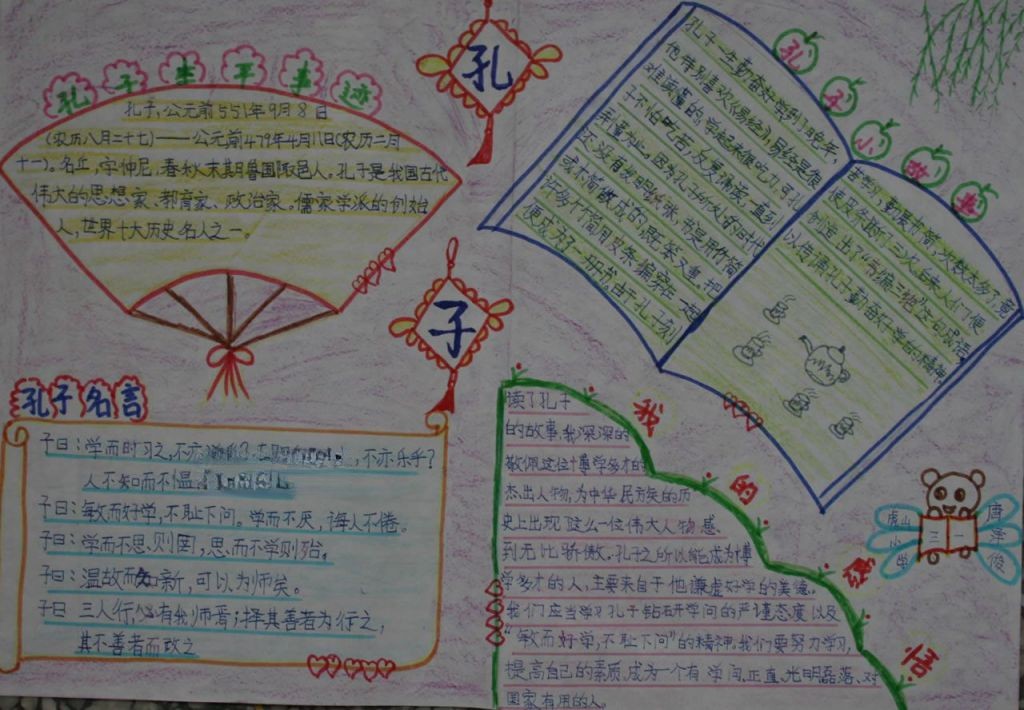 孔子生平事迹
孔子,公元前551年9月8日
(农历八月二十七)——公元前479年4月11日(农历二月
十一)。名丘,字仲尼,春秋末期鲁国陬邑人。孔子是我国古代
伟大的思想家、教育家、政治家。儒家学派的创始
人,世界十大历史名人之一。
孔
子
孔子小故事
孔子一生勤奋好学,到了晚年,
他特别喜欢《易经》。易经是很
难读懂的,学起来很吃力,可孔
子不怕吃苦,反复诵读,一直到
弄懂为止。因为孔子所处的时代,
还没有发明纸张,书是用竹简
或木简做成的,既笨又重。把
许多竹简用皮条编穿在一起,
便成为了一册书。由于孔子刻
苦学习,勤展书简,次数太多了,竟
使皮条断了三次。后来,人们便
创造出了“韦编三绝”这句成语,
以传诵孔子勤奋好学的精神。
孔子名言
子曰:学而时习之,不亦 ,不亦乐乎?
人不知而不愠,
子曰:敏而好学,不耻下问。学而不厌,诲人不倦。
子曰:学而不思则罔,思而不学则殆。
子曰:温故而知新,可以为师矣。
子曰 三人行,必有我师焉;择其善者为行之,
其不善者而改之
我的感悟
读了孔子
的故事,我深深的
敬佩这位博学多才的
杰出人物,为中华民族的历
史上出现这么一位伟大人物感
到无比骄傲。孔子之所以能成为博
学多才的人,主要来自于他谦虚好学的美德。
我们应当学习孔子钻研学问的严谨态度以及
“敏而好学,不耻下问”的精神。我们要努力学习,
提高自己的素质,成为一个有学问、正直、光明磊落、对
国家有用的人。
虎山
小学
三 一
唐
泽
俊